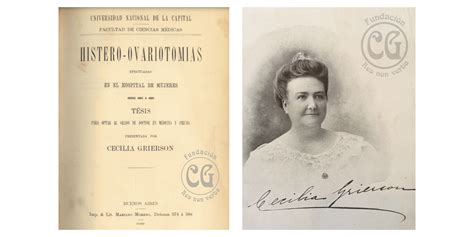 UNIVERSIDAD NACIONAL DE LA CAPITAL
FACULTAD DE CIENCIAS MÉDICAS
HISTERO-OVARIOTOMIAS
EFECTUADAS
EN EL HOSPITAL DE MUJERES
TÉSIS
PARA OPTAR AL GRADO DE DOCTOR EN MEDICINA Y CIRUGÍA
PRESENTADA POR
CECILIA GRIERSON
BUENOS AIRES
Imp. de Lit. MARIANO MORENO,
Fundación
CG
Res non verba
Fundación
CG
Res non verba
Cecilia Grierson